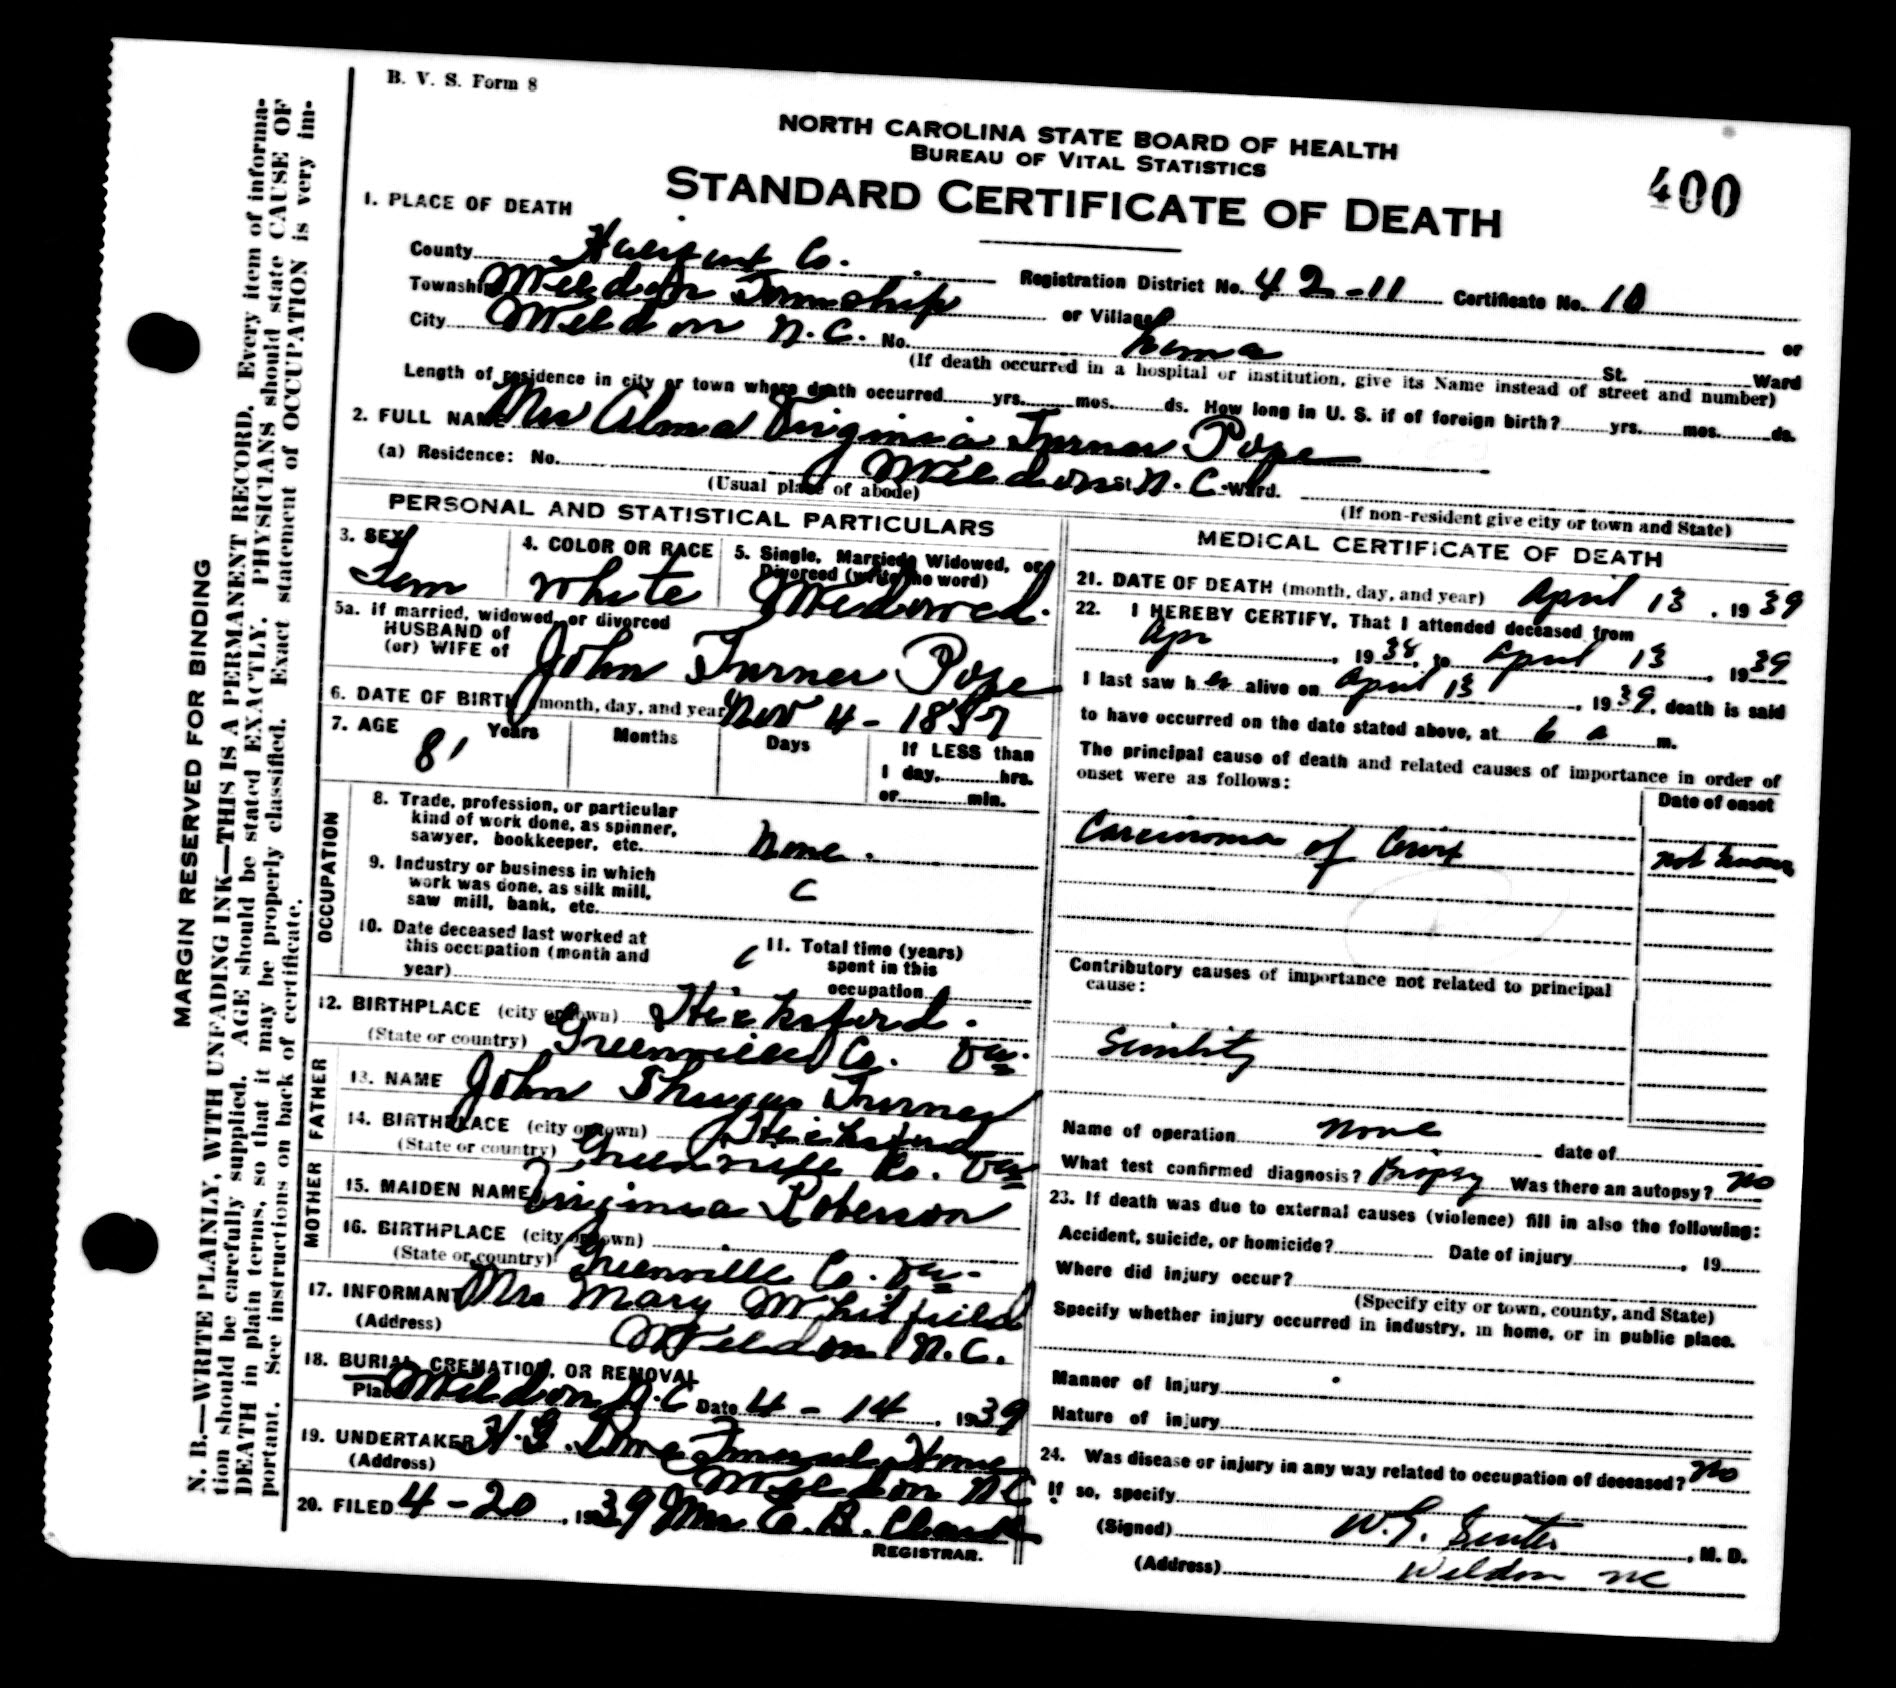 B. V. S. Form 8
NORTH CAROLINA STATE BOARD OF HEALTH
BUREAU OF VITAL STATISTICS
STANDARD CERTIFICATE OF DEATH
400
1. PLACE OF DEATH
County Halifax Co. Registration District No. 42-11 Certificate No. 10
Township Weldon Township or Village or
City Weldon N.C. No. home St. Ward
(If death occurred in a hospital or institution, give its Name instead of street and number)
Length of residence in city or town where death occurred yrs. mos. ds. How long in U. S. if of foreign birth? yrs. mos. ds.
2. FULL NAME Mrs Alma Virginia Turner Pope
(a) Residence: No. Weldon St. N.C. Ward.
(Usual place of abode) (If non-resident give city or town and State)
PERSONAL AND STATISTICAL PARTICULARS
3. SEX 4. COLOR OR RACE 5. Single, Married, Widowed, or
Divorced (write the word)
Fem White Widowed.
5a. If married, widowed, or divorced
HUSBAND of
(or) WIFE of John Turner Pope
6. DATE OF BIRTH (month, day, and year) Nov 4 - 1857
7. AGE Years Months Days If LESS than
81 1 day, hrs.
or min.
OCCUPATION
8. Trade, profession, or particular
kind of work done, as spinner,
sawyer, bookkeeper, etc. None.
9. Industry or business in which
work was done, as silk mill,
saw mill, bank, etc.
10. Date deceased last worked at
this occupation (month and
year)
11. Total time (years)
spent in this
occupation
12. BIRTHPLACE (city or town) Hicksford.
(State or country) Greenville Co. Va.
FATHER
13. NAME John Turner
14. BIRTHPLACE (city or town) Hicksford
(State or country) Greenville Co. Va
MOTHER
15. MAIDEN NAME Virginia Roberson
16. BIRTHPLACE (city or town)
(State or country) Greenville Co. Va.
17. INFORMANT Mrs Mary Whitfield
(Address) Weldon N.C.
18. BURIAL, CREMATION, OR REMOVAL
Place Weldon N.C Date 4 - 14, 1939
19. UNDERTAKER H.G. Funeral Home
(Address) Weldon NC
20. FILED 4-20, 1939 Mrs E. B. Clark
REGISTRAR.
MEDICAL CERTIFICATE OF DEATH
21. DATE OF DEATH (month, day, and year) April 13, 1939
22. I HEREBY CERTIFY, That I attended deceased from
Apr, 1938, to April 13, 1939
I last saw her alive on April 13, 1939, death is said
to have occurred on the date stated above, at 6 a m.
The principal cause of death and related causes of importance in order of
onset were as follows:
Date of onset
Carcinoma of not known
Contributory causes of importance not related to principal
cause:
Senility
Name of operation none date of
What test confirmed diagnosis? Biopsy Was there an autopsy? no
23. If death was due to external causes (violence) fill in also the following:
Accident, suicide, or homicide? Date of injury, 19
Where did injury occur?
(Specify city or town, county, and State)
Specify whether injury occurred in industry, in home, or in public place.
Manner of injury
Nature of injury
24. Was disease or injury in any way related to occupation of deceased? no
If so, specify
(Signed) W.G. Suiter, M. D.
(Address) Weldon NC
MARGIN RESERVED FOR BINDING
N. B.—WRITE PLAINLY, WITH UNFADING INK—THIS IS A PERMANENT RECORD. Every item of informa-
tion should be carefully supplied. AGE should be stated EXACTLY. PHYSICIANS should state CAUSE OF
DEATH in plain terms, so that it may be properly classified. Exact statement of OCCUPATION is very im-
portant. See instructions on back of certificate.